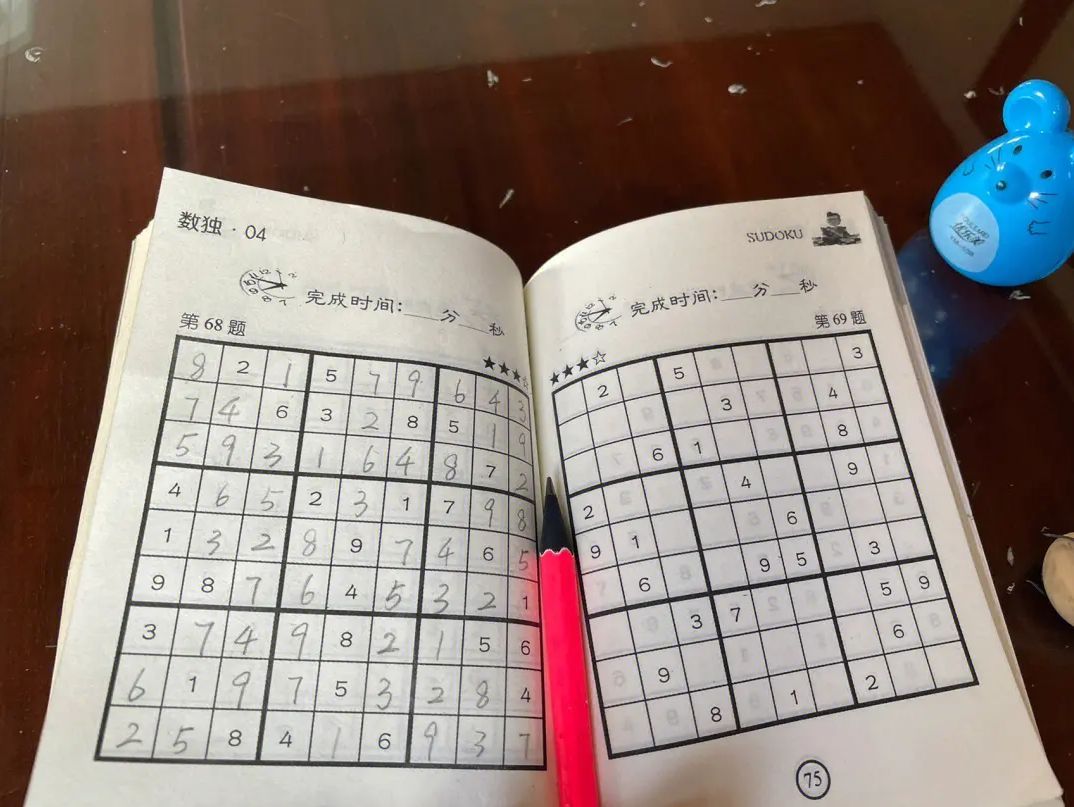 数独 · 04
完成时间:___分___秒
第 68 题
★★★☆
8 2 1 5 7 9 6 4 3
7 4 6 3 2 8 5 1 9
5 9 3 1 6 4 8 7 2
4 6 5 2 3 1 7 9 8
1 3 2 8 9 7 4 6 5
9 8 7 6 4 5 3 2 1
3 7 4 9 8 2 1 5 6
6 1 9 7 5 3 2 8 4
2 5 8 4 1 6 9 3 7
SUDOKU
完成时间:___分___秒
第 69 题
★★★☆
2 5 3
3 4
6 1 8
2 4 9
9 1 6
6 9 5 3
3 7 5 9
9 6
8 1 2
75